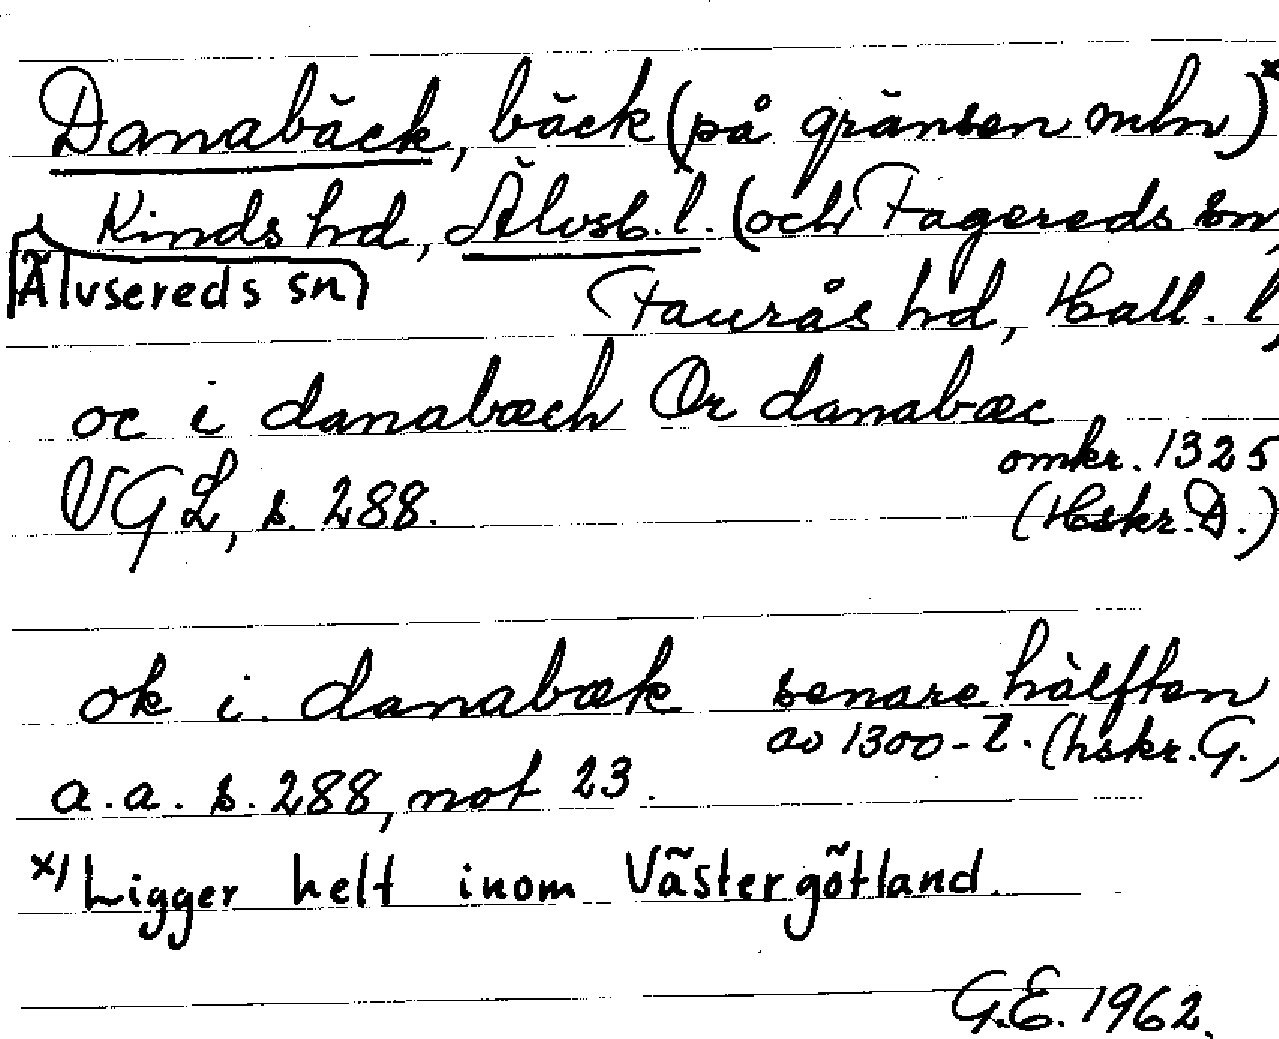 Danabäck, bäck (på gränsen mln)x
Kinds hd, Älvsb. l. (och Fagereds sn,
Älvsereds sn
Faurås hd, Hall. l,
oc i danabæch Or danabæc
omkr. 1325
VGL, s. 288.
(Hskr. D.)
ok i danabæk senare hälften
av 1300-t. (hskr. G.)
a.a. s. 288, not 23.
x) Ligger helt inom Västergötland
G.E. 1962.